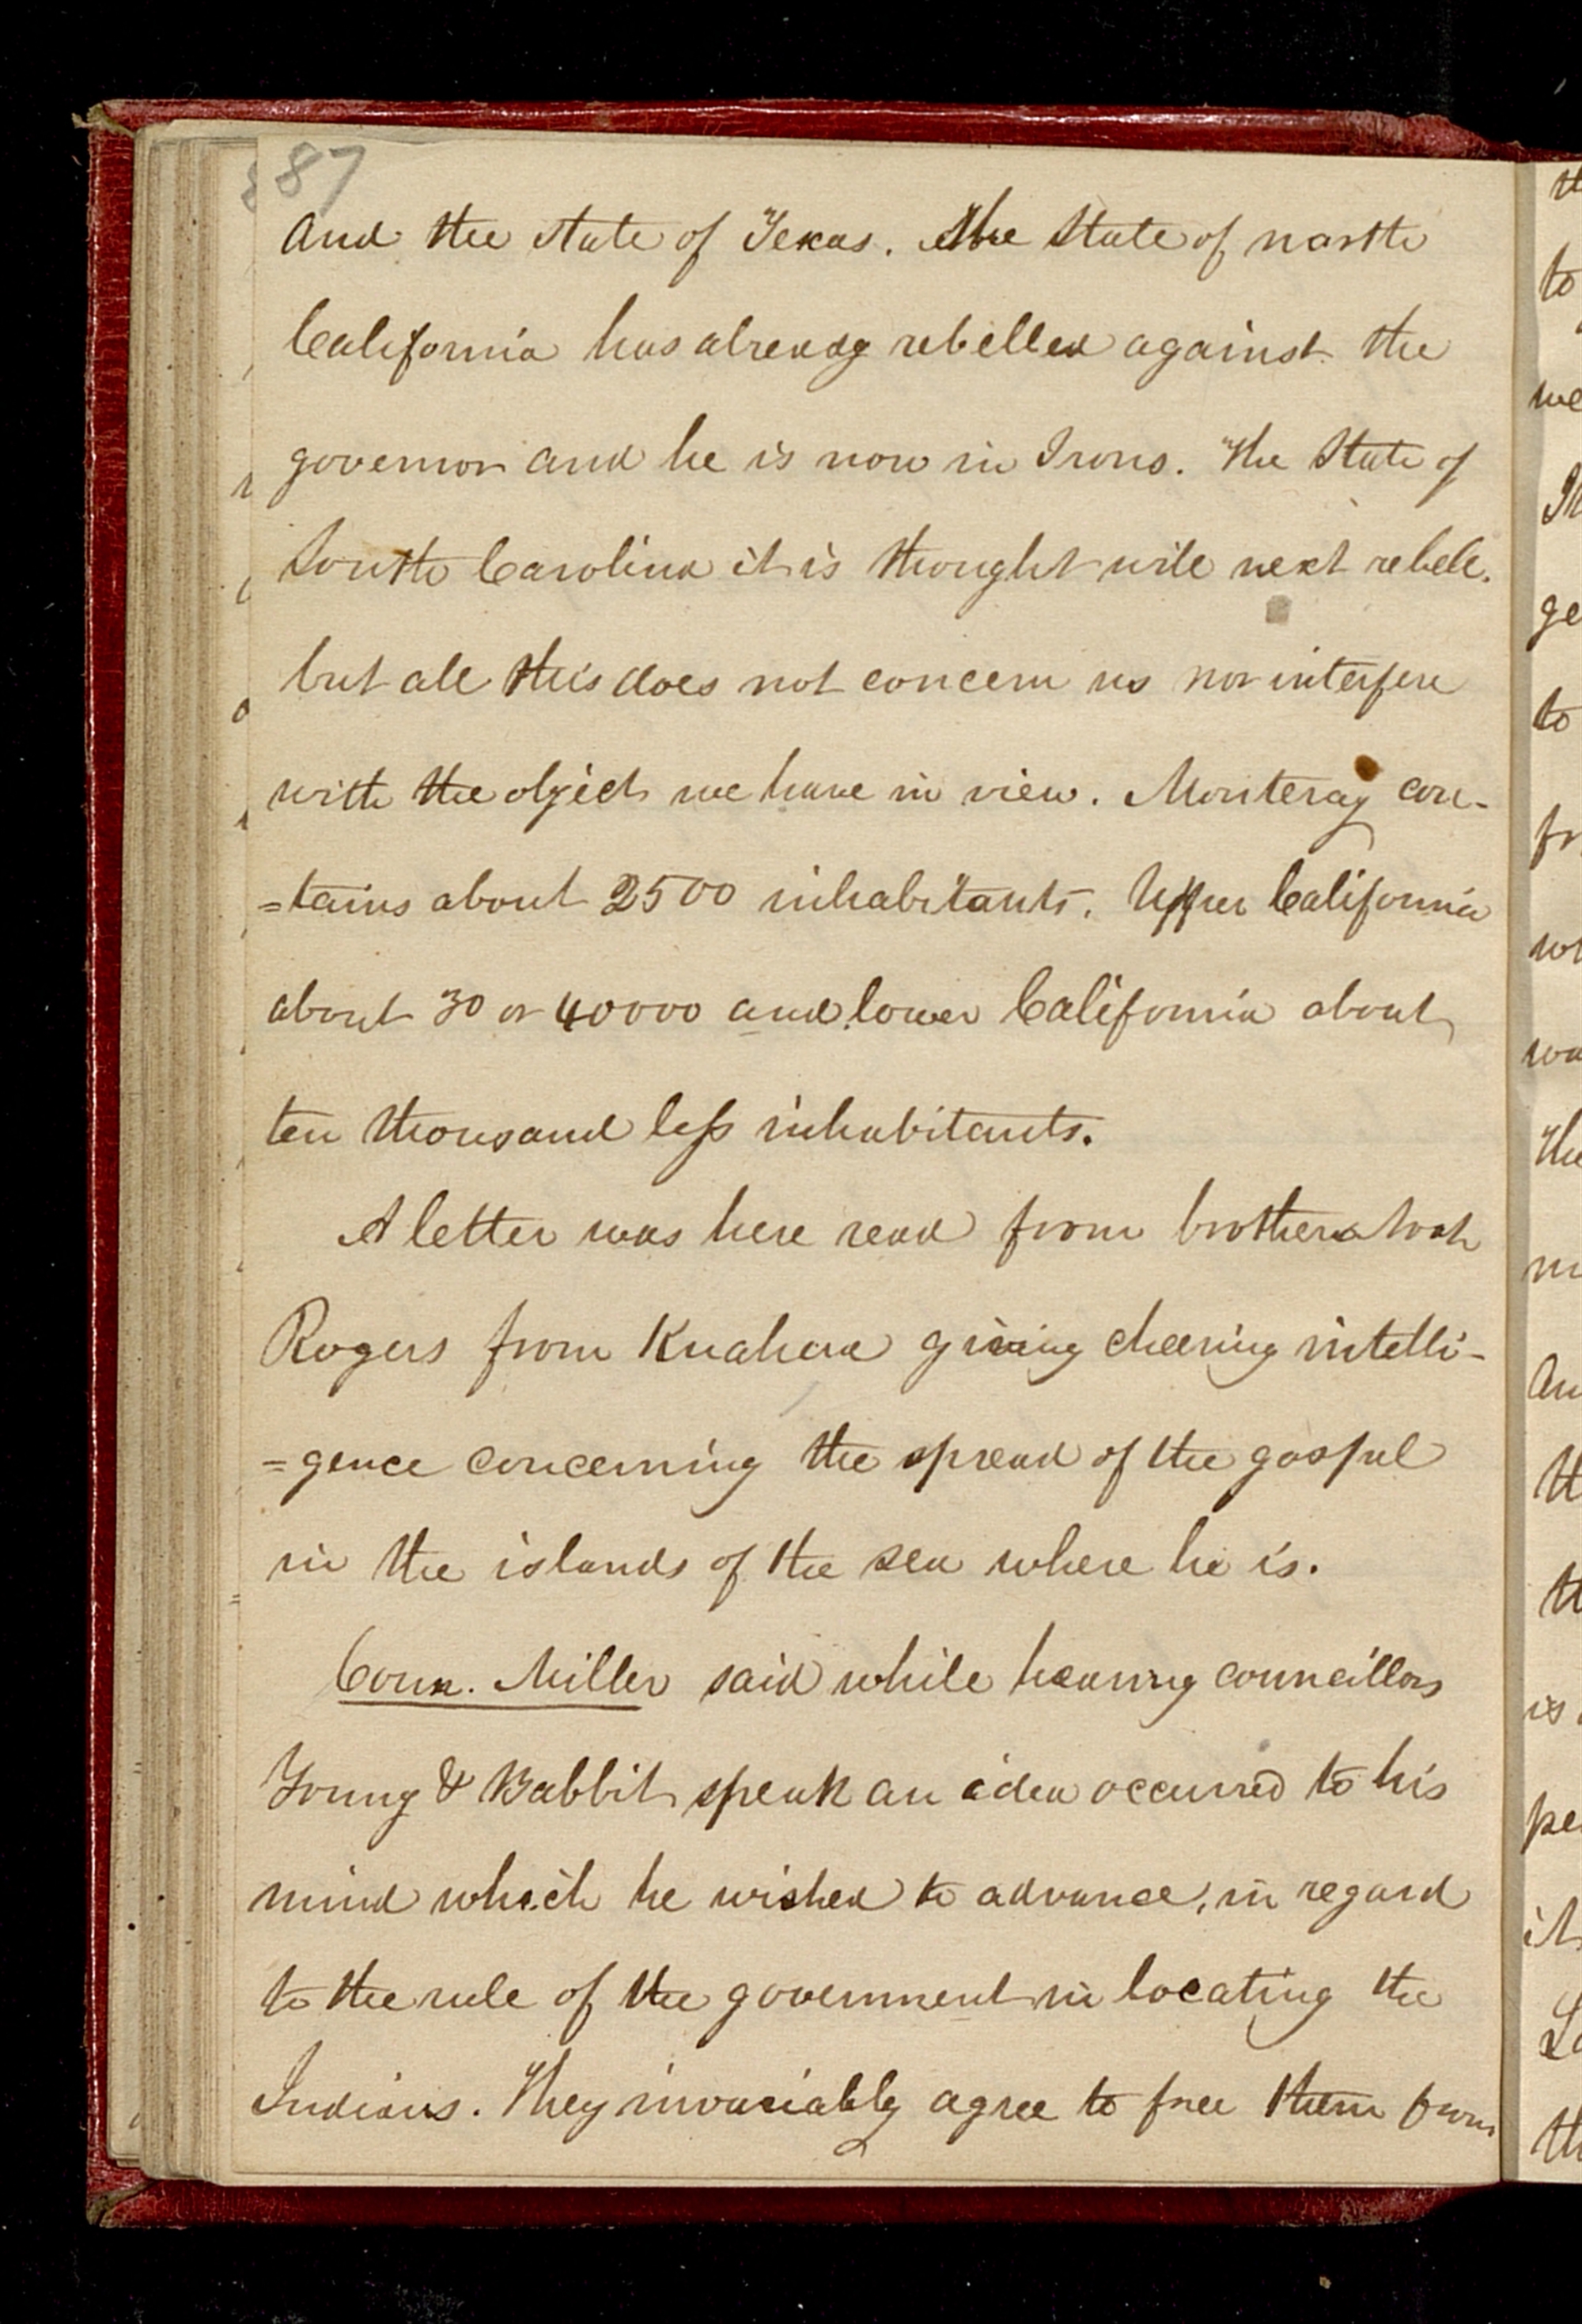 87
and the state of Texas. The State of north
California has already rebelled against the
governor and he is now in Irons. The State of
South Carolina it is thought will next rebell.
but all this does not concern us nor interfere
with the object we have in view. Monteray con-
=tains about 2500 inhabitants. Upper California
about 30 or 40000 and lower California about
ten thousand less inhabitants.
A letter was here read from brother Noah
Rogers from Kuahera giving cheering intelli-
=gence concerning the spread of the gospel
in the islands of the sea where he is.
Coun. Miller said while hearing councillors
Young & Babbit speak an idea occurred to his
mind which he wished to advance, in regard
to the rule of the government in locating the
Indians. They invariably agree to free them from